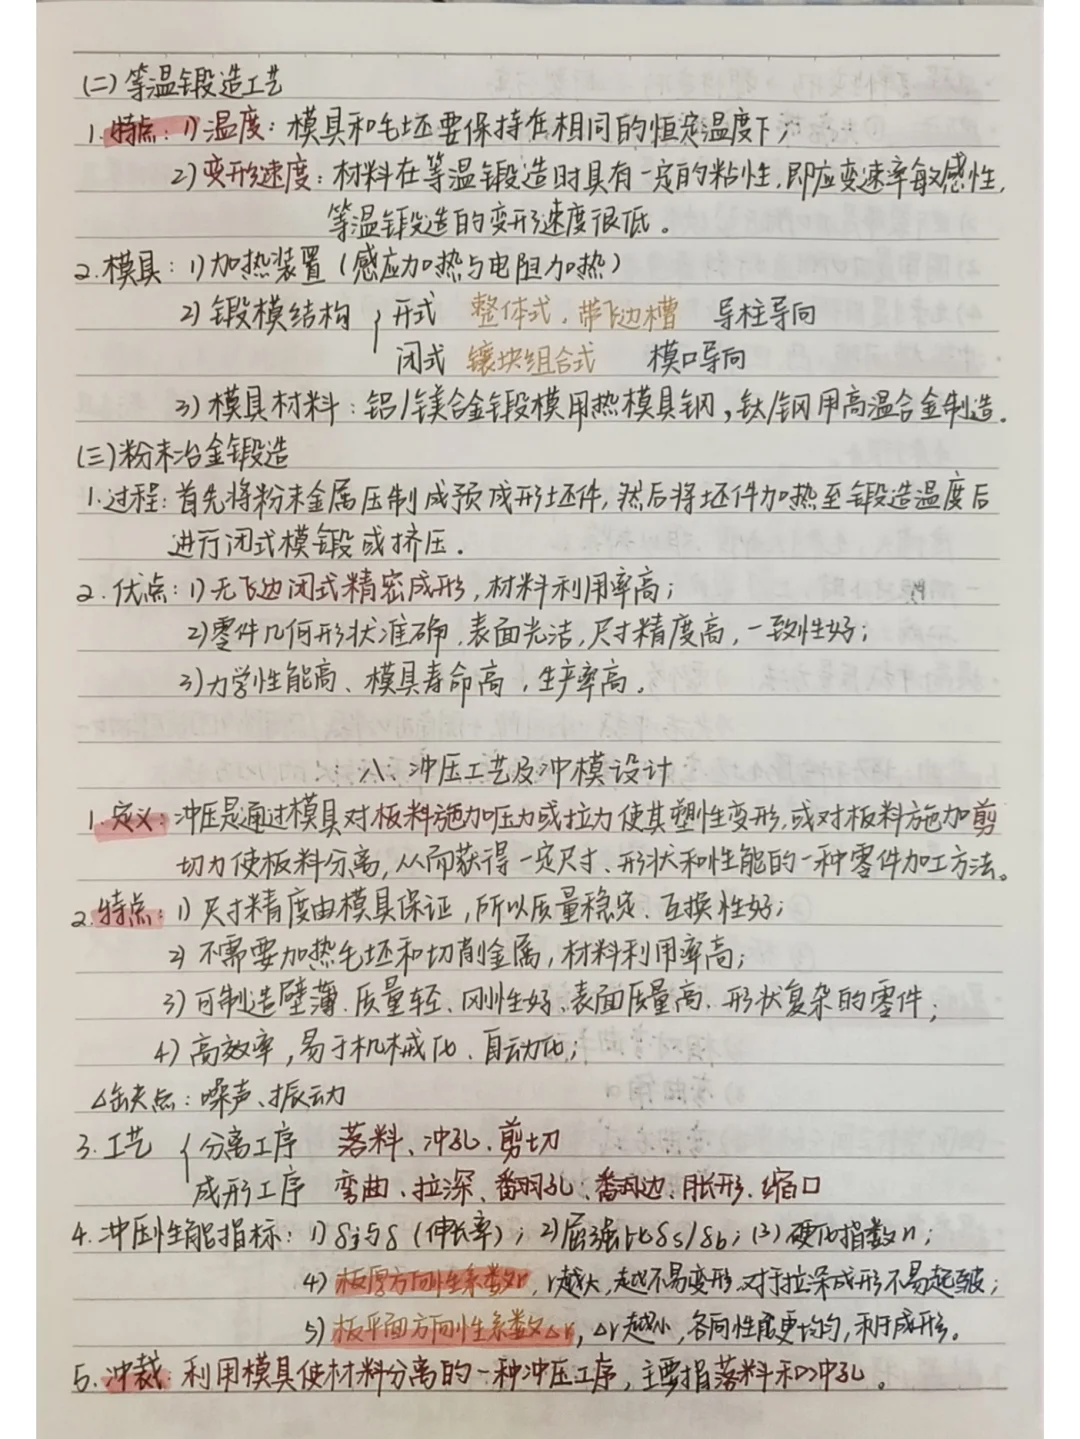 (二)等温锻造工艺
1.特点:1)温度:模具和毛坯要保持在相同的恒定温度下;
2)变形速度:材料在等温锻造时具有一定的粘性,即应变速率敏感性,
等温锻造的变形速度很低。
2.模具:1)加热装置(感应加热与电阻加热)
2)锻模结构 { 开式 整体式、带飞边槽 导柱导向
闭式 镶块组合式 模口导向
3)模具材料:铝/镁合金锻模用热模具钢,钛/钢用高温合金制造。
(三)粉末冶金锻造
1.过程:首先将粉末金属压制成预成形坯件,然后将坯件加热至锻造温度后
进行闭式模锻或挤压.
2.优点:1)无飞边闭式精密成形,材料利用率高;
2)零件几何形状准确、表面光洁,尺寸精度高,一致性好;
3)力学性能高、模具寿命高,生产率高。
八、冲压工艺及冲模设计
1.定义:冲压是通过模具对板料施加压力或拉力使其塑性变形,或对板料施加剪
切力使板料分离,从而获得一定尺寸、形状和性能的一种零件加工方法。
2.特点:1)尺寸精度由模具保证,所以质量稳定、互换性好;
2)不需要加热毛坯和切削金属,材料利用率高;
3)可制造壁薄、质量轻、刚性好、表面质量高、形状复杂的零件;
4)高效率,易于机械化、自动化;
△缺点:噪声、振动
3.工艺 { 分离工序 落料、冲孔、剪切
成形工序 弯曲、拉深、翻孔、翻边、胀形、缩口
4.冲压性能指标:1)δj与δ(伸长率);2)屈强比δs/δb;(3)硬化指数n;
4)板厚方向性系数r,r越大,越不易变形,对于拉深成形不易起皱;
5)板平面方向性系数△r,△r越小,各向性能更均匀,利于成形。
5.冲裁:利用模具使材料分离的一种冲压工序,主要指落料和冲孔。